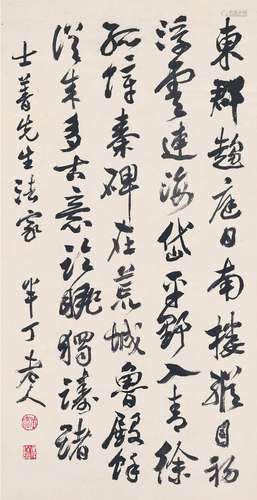 東郡趨庭日南樓縱目初
浮雲連海岱平野入青徐
孤嶂秦碑在荒城魯殿餘
從來多古意臨眺獨躊躇
士菩先生法家 半丁老人